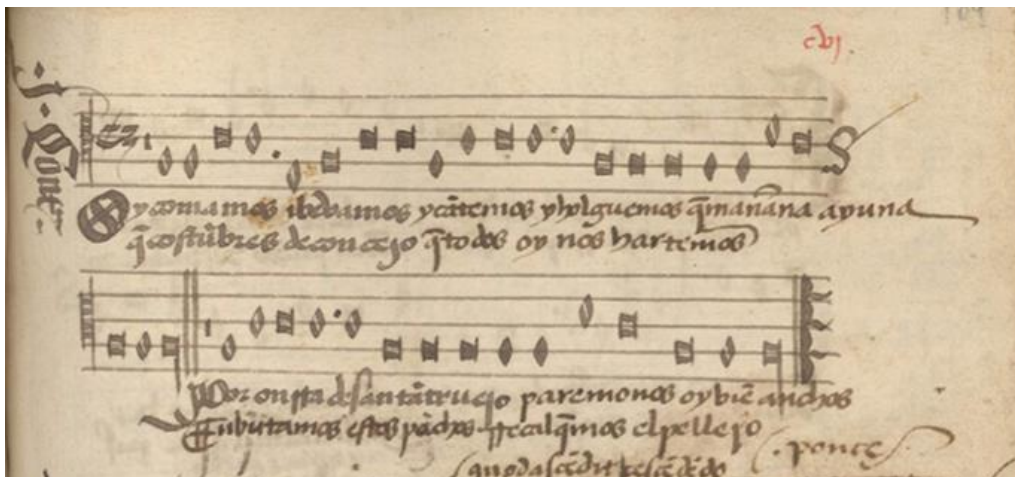 cvj.
Oy comamos ibebamos y cãtemos y holguemos q̃ mañana ayuna
q̃ costũbres de concejo q̃ todos oy nos hartemos
Por onrra de santãtruejo paremonos oy biẽ anchos
enbutamos estos pãchos rrecalq̃mos el pellejo
ponce